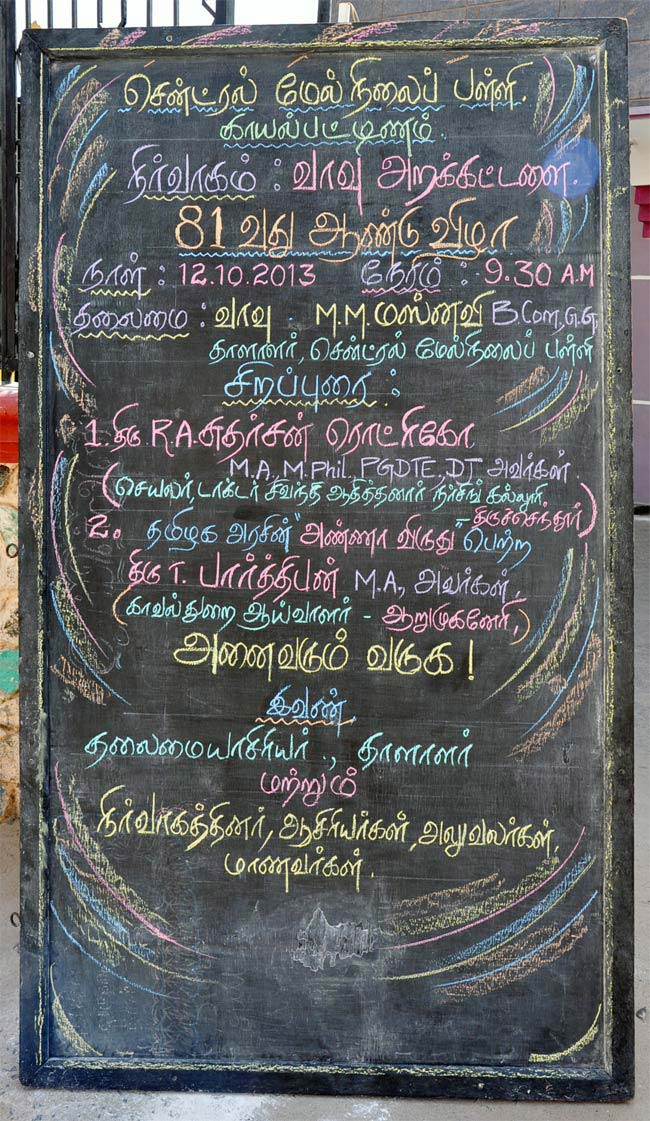 சென்ட்ரல் மேல்நிலைப் பள்ளி.
காயல்பட்டிணம்.
நிர்வாகம் : வாவு அறக்கட்டளை.
81 வது ஆண்டு விழா
நாள் : 12.10.2013 நேரம் : 9.30 A.M
தலைமை : வாவு . M.M. மஸ்னவி B Com,
தாளாளர், சென்ட்ரல் மேல்நிலைப் பள்ளி
சிறப்புரை :
1. திரு R.A. சுதர்சன் ரொட்ரிகோ.
M.A, M.Phil, PGDTE, DJ அவர்கள்.
(செயலர், டாக்டர் சிவந்தி ஆதித்தனார் நர்சிங் கல்லூரி
- திருச்செந்தூர்)
2. தமிழக அரசின் "அண்ணா விருது" பெற்ற
திரு T. பார்த்திபன் M.A., அவர்கள்,
(காவல்துறை ஆய்வாளர் - ஆறுமுகனேரி,)
அனைவரும் வருக !
இவண்,
தலைமையாசிரியர் ., தாளாளர்
மற்றும்
நிர்வாகத்தினர், ஆசிரியர்கள், அலுவலர்கள்,
மாணவர்கள்.